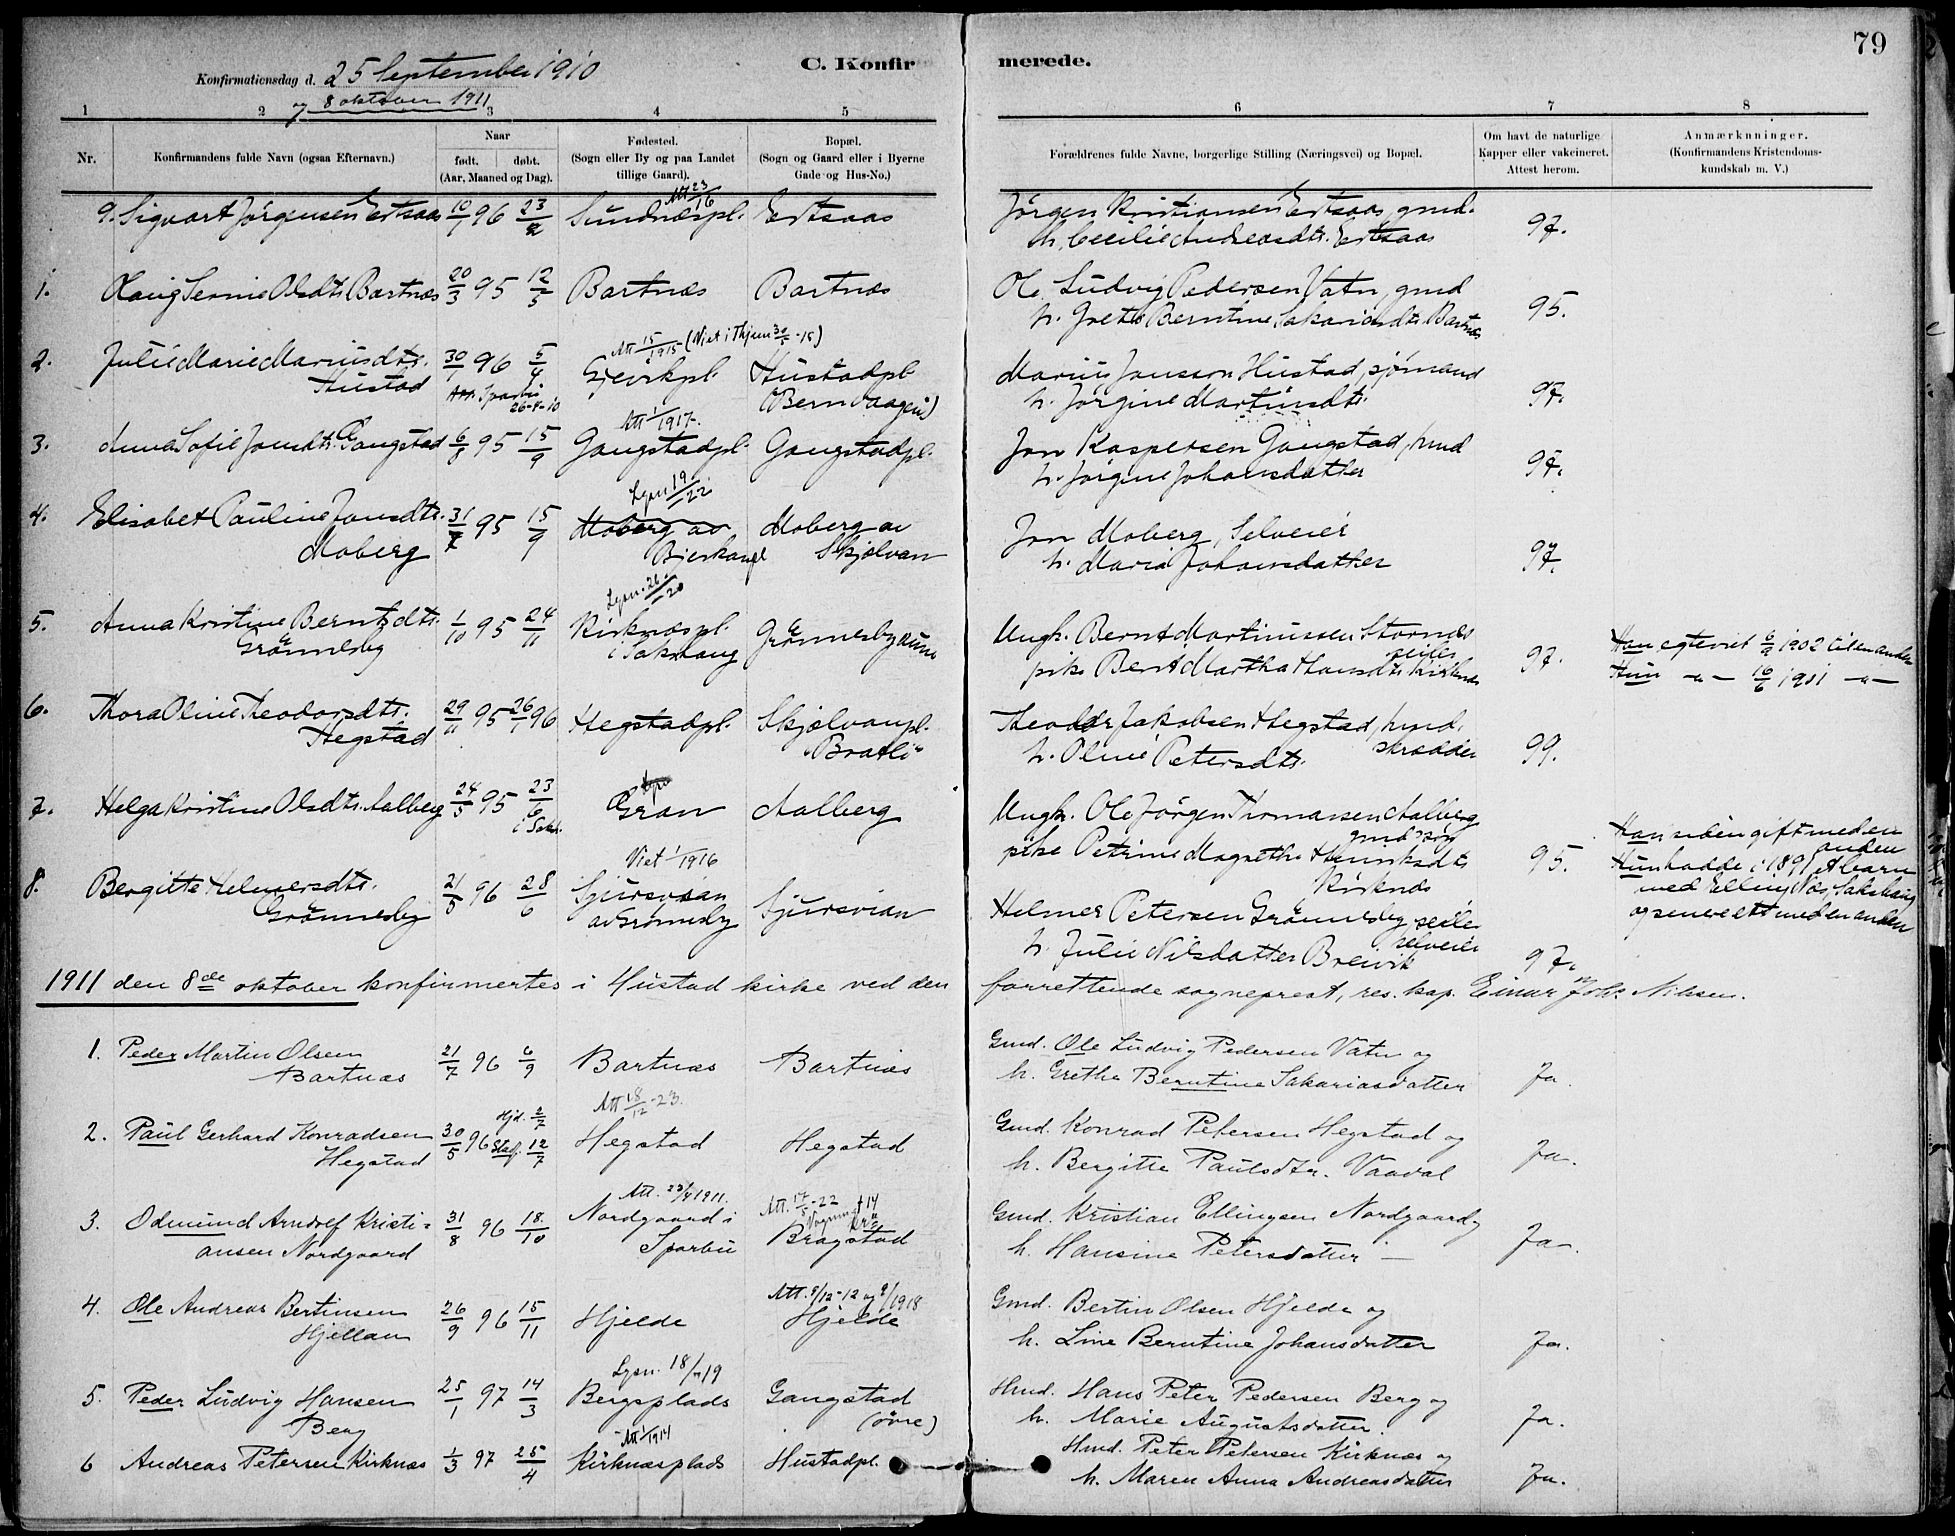 79
Konfirmationsdag d. 25 September 1910
og 8 oktober 1911
C. Konfirmerede.
1 2 3 4 5 6 7 8
Nr.
Konfirmandens fulde Navn (ogsaa Efternavn.)
Naar
født. døbt.
(Aar, Maaned og Dag).
Fødested.
(Sogn eller By og paa Landet
tillige Gaard).
Bopæl.
(Sogn og Gaard eller i Byerne
Gade og Hus-No.)
Forældrenes fulde Navne, borgerlige Stilling (Næringsvei) og Bopæl.
Om havt de naturlige
Kapper eller vakcineret.
Attest herom.
Anmærkninger.
(Konfirmandens Kristendoms-
kundskab m. V.)
9. Sigvart Jørgensen Ertsaas 10/1 96 23/2 Sundnæspl. Ertsaas Jørgen Kristiansen Ertsaas, gmd. 97.
h. Cecilie Andreasdtr. Ertsaas
1. Olsdtr. Bartnæs 20/3 95 12/5 Bartnæs Bartnæs Ole Ludvig Pedersen Vatn, gmd 95.
h. Grethe Berntine Sakariasdtr. Bartnæs
Att 15/1915 (Viet i
2. Julie Marie Mariusdtr. 30/1 96 5/4 Gjevikpl. Hustadpl. Marius Jonsson Hustad, sjømand 97.
Hustad (Bernvaagen) h. Jørgine Martinsdtr.
Att 1/1917
3. Anna Sofie Jonsdtr. Gangstad 6/8 95 15/9 Gangstadpl. Gangstadpl. Jon Kaspersen Gangstad, hmd 97.
h. Jørgine Johansdatter
Lysn 19/22
4. Elisabet Pauline Jonsdtr. 31/7 95 15/9 Moberg av Moberg av Jon Moberg, Selveier 97.
Moberg Bjerkanpl Skjelvan h. Maria Johansdatter
Lysn. 26/20
5. Anna Kristine Berntsdtr. 1/10 95 24/11 Kirknæspl. Grønnesby Ungk. Bernt Martinussen Stornæs 97. Han egteviet 6/9 1902 til en anden
Grønnesby i Sakshaug pike Martha Kirknæs Hun -"- 16/6 1911 -"-
6. Thora Oline Theodorsdtr. 29/11 95 26/1 96 Hegstadpl. Skjelvanpl. Theodor Jakobsen Hegstad, hmd. 99.
Hegstad "Bratli" h. Oline Petersdtr. skrædder
7. Helga Kristine Olsdtr. Aalberg 24/5 95 23/6 Gran Aalberg Ungk. Ole Jørgen Thomassen Aalberg 95. Han siden gift med en anden
pike Petrine Magrethe Henriksdtr. Hun hadde i 1891 et barn
Kirknæs med Elling Næs, Sakshaug
og senere ett med en anden
Viet 1/1916
8. Bergitte Helmersdtr. 21/5 96 28/6 Sjursvian Sjursvian Helmer Petersen Grønnesby, 97.
Grønnesby av Grønnesby selveier
h. Julie Nilsdatter Breivik
1911 den 8de oktober konfirmertes i Hustad kirke ved den forrettende sogneprest, res. kap. Einar Joh. Nilsen.
1. Peder Martin Olsen 21/7 96 6/9 Bartnæs Bartnæs Gmd. Ole Ludvig Pedersen Vatn og Ja.
Bartnæs h. Grethe Berntine Sakariasdatter
Att 18/12-23. Hjd. 2/7
2. Paul Gerhard Konradsen 30/5 96 Staf. 12/7 Hegstad Hegstad Gmd. Konrad Petersen Hegstad og Ja.
Hegstad h. Bergitte Paulsdtr. Vaadal
Att. 23/4 1911. Att. 17/5-22
3. Odmund Arndolf Kristi- 31/8 96 18/10 Nordgaard i Bragstad Gmd. Kristian Ellingsen Nordgaard og Ja.
ansen Nordgaard Sparbu h. Hansine Petersdatter —
Att. 5/12-12 og 9/1918
4. Ole Andreas Bertinsen 26/9 96 15/11 Hjelde Hjelde Gmd. Bertin Olsen Hjelde og Ja.
Hjellan h. Line Berntine Johansdatter
Lysn. 18/11 19
5. Peder Ludvig Hansen 25/1 97 14/3 Bergsplads Gangstad Hmd. Hans Peter Pedersen Berg og Ja.
Berg (øvre) h. Marie Augustsdatter.
Att 1/1914
6 Andreas Petersen Kirknæs 1/3 97 25/4 Kirknæsplads Hustadpl. Hmd. Peter Petersen Kirknæs og Ja.
h. Maren Anna Andreasdatter